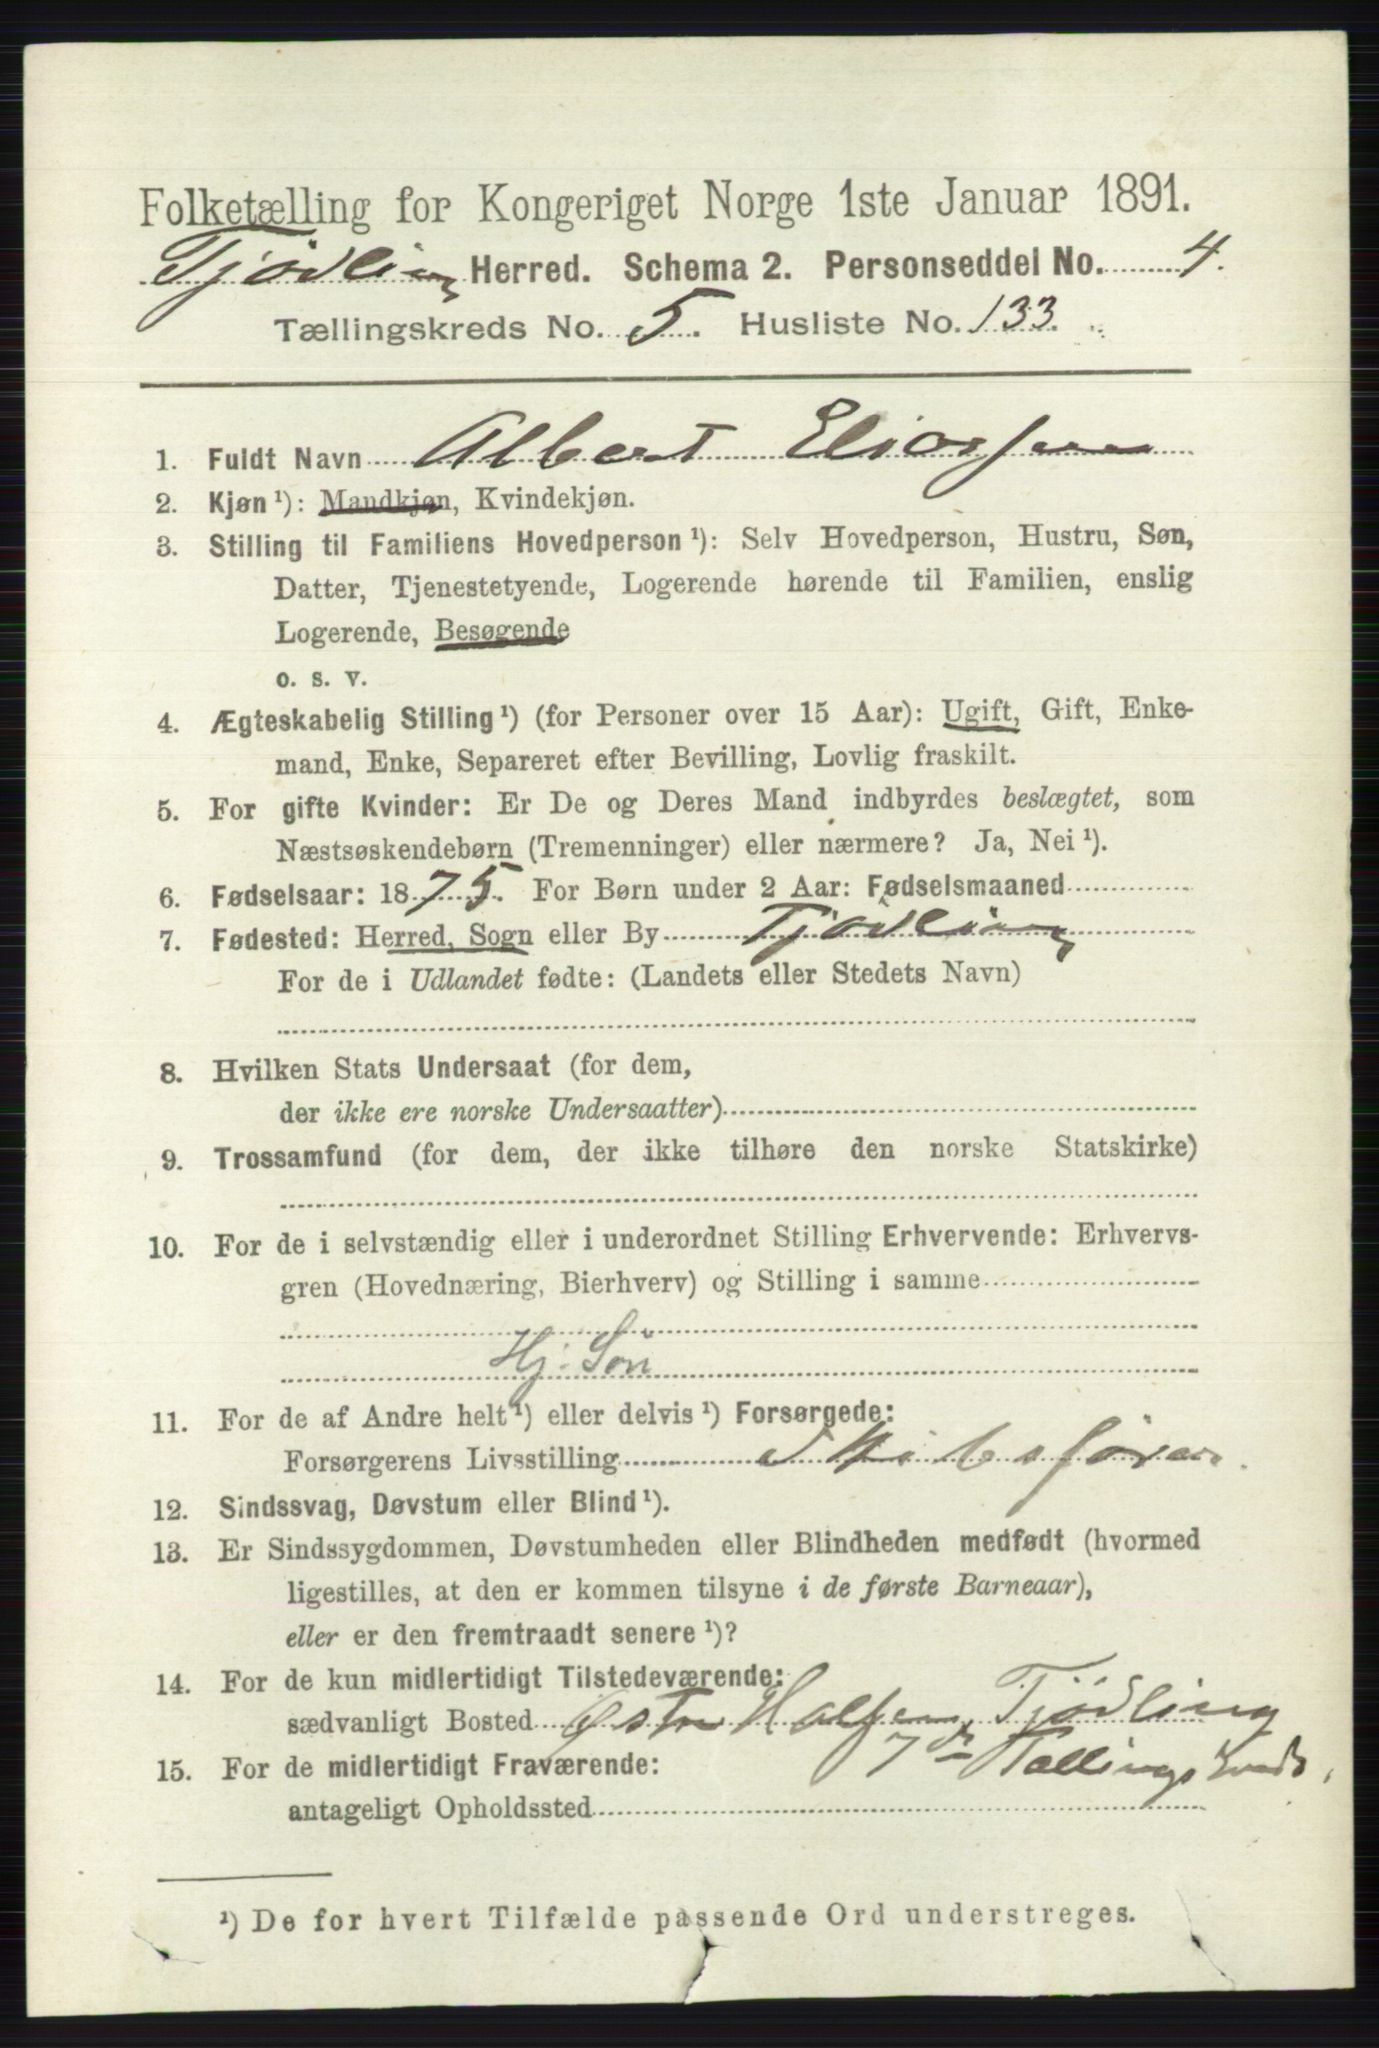 Folketælling for Kongeriget Norge 1ste Januar 1891.
Tjødling Herred. Schema 2. Personseddel No. 4.
Tællingskreds No. 5. Husliste No. 133.
1. Fuldt Navn Albert Eliassen
2. Kjøn ¹): Mandkjøn, Kvindekjøn.
3. Stilling til Familiens Hovedperson ¹): Selv Hovedperson, Hustru, Søn,
Datter, Tjenestetyende, Logerende hørende til Familien, enslig
Logerende, Besøgende
o. s. v.
4. Ægteskabelig Stilling ¹) (for Personer over 15 Aar): Ugift, Gift, Enke-
mand, Enke, Separeret efter Bevilling, Lovlig fraskilt.
5. For gifte Kvinder: Er De og Deres Mand indbyrdes beslægtet, som
Næstsøskendebørn (Tremenninger) eller nærmere? Ja, Nei ¹).
6. Fødselsaar: 1875. For Børn under 2 Aar: Fødselsmaaned
7. Fødested: Herred, Sogn eller By Tjødling
For de i Udlandet fødte: (Landets eller Stedets Navn)
8. Hvilken Stats Undersaat (for dem,
der ikke ere norske Undersaatter)
9. Trossamfund (for dem, der ikke tilhøre den norske Statskirke)
10. For de i selvstændig eller i underordnet Stilling Erhvervende: Erhvervs-
gren (Hovednæring, Bierhverv) og Stilling i samme
Hj. Søn
11. For de af Andre helt ¹) eller delvis ¹) Forsørgede:
Forsørgerens Livsstilling Skibsfører.
12. Sindssvag, Døvstum eller Blind ¹).
13. Er Sindssygdommen, Døvstumheden eller Blindheden medfødt (hvormed
ligestilles, at den er kommen tilsyne i de første Barneaar),
eller er den fremtraadt senere ¹)?
14. For de kun midlertidigt Tilstedeværende:
sædvanligt Bosted Østre Halsen, Tjødling
15. For de midlertidigt Fraværende: 7de Tællingskreds.
antageligt Opholdssted
¹) De for hvert Tilfælde passende Ord understreges.